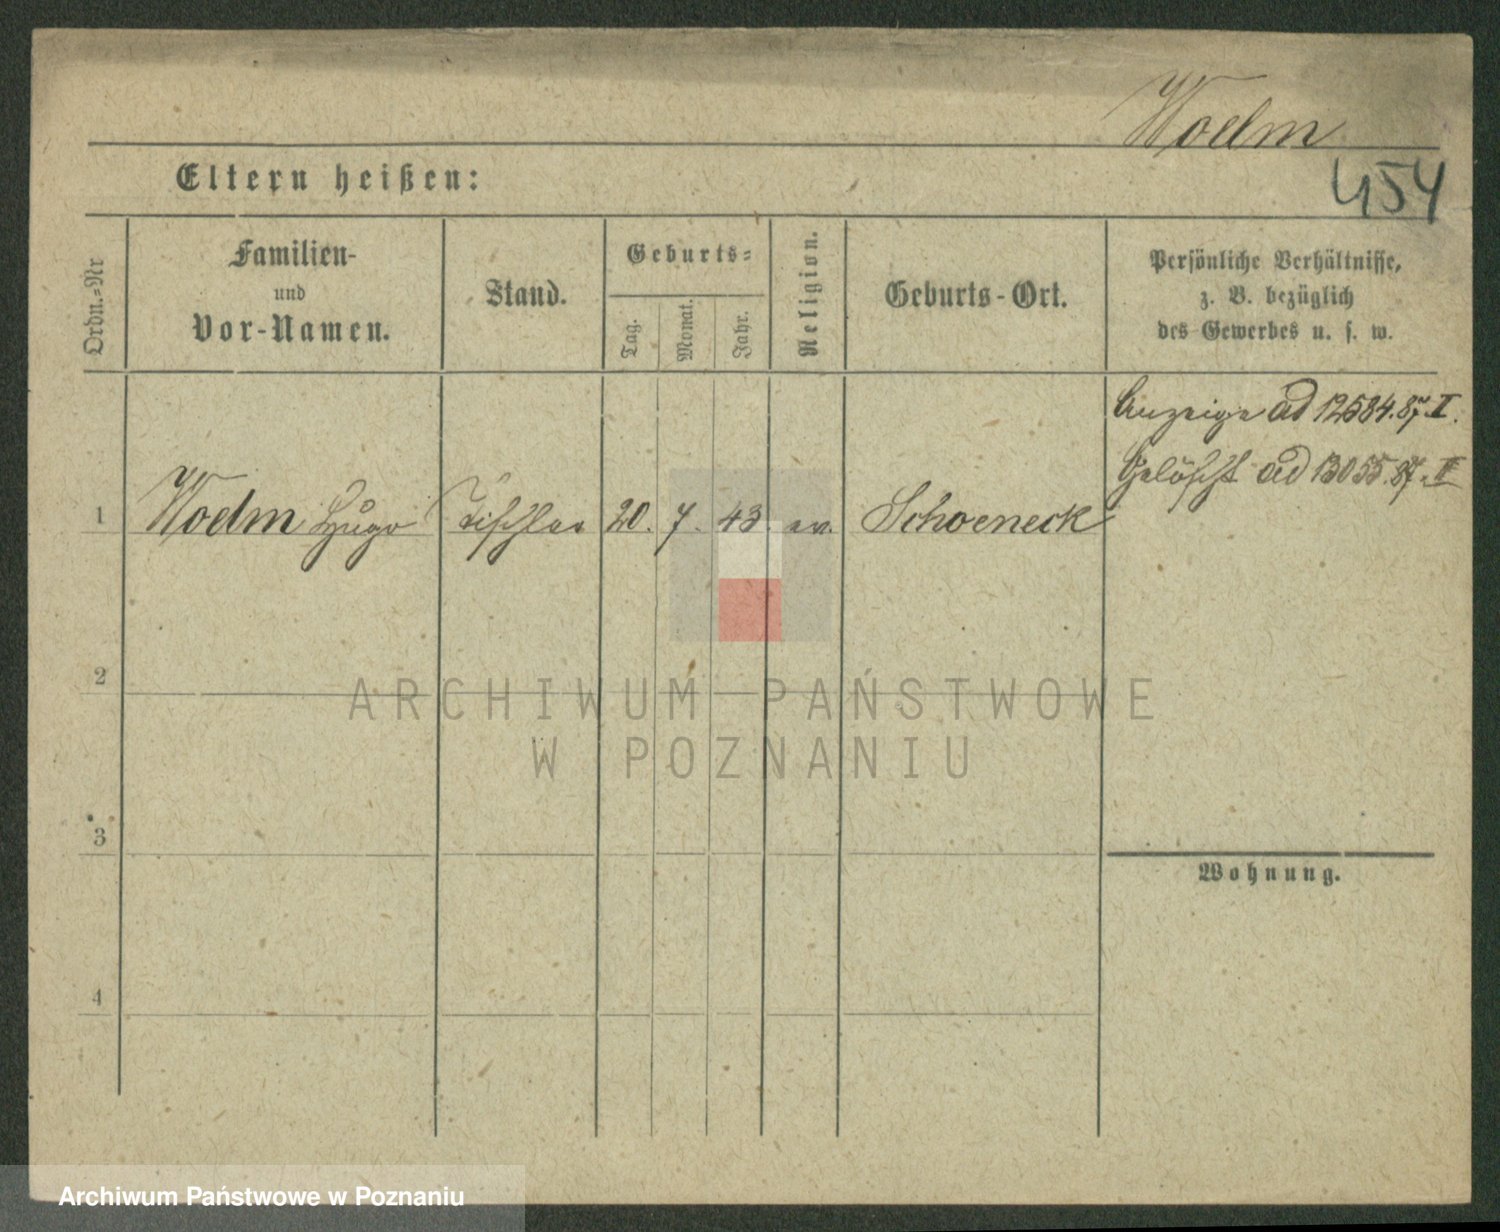 Woelm
454
Eltern heißen:
Ordn.=Nr
Familien-
und
Vor-Namen.
Stand.
Geburts=
Tag.
Monat.
Jahr.
Religion.
Geburts-Ort.
Persönliche Verhältnisse,
z. B. bezüglich
des Gewerbes u. s. w.
Anzeige ad 12584.87.I.
Gelöscht ad 13055.87.II
1 Woelm Hugo Tischler 20. 7. 43. ev. Schoeneck
2
ARCHIWUM PAŃSTWOWE
W POZNANIU
3
Wohnung.
4
Archiwum Państwowe w Poznaniu